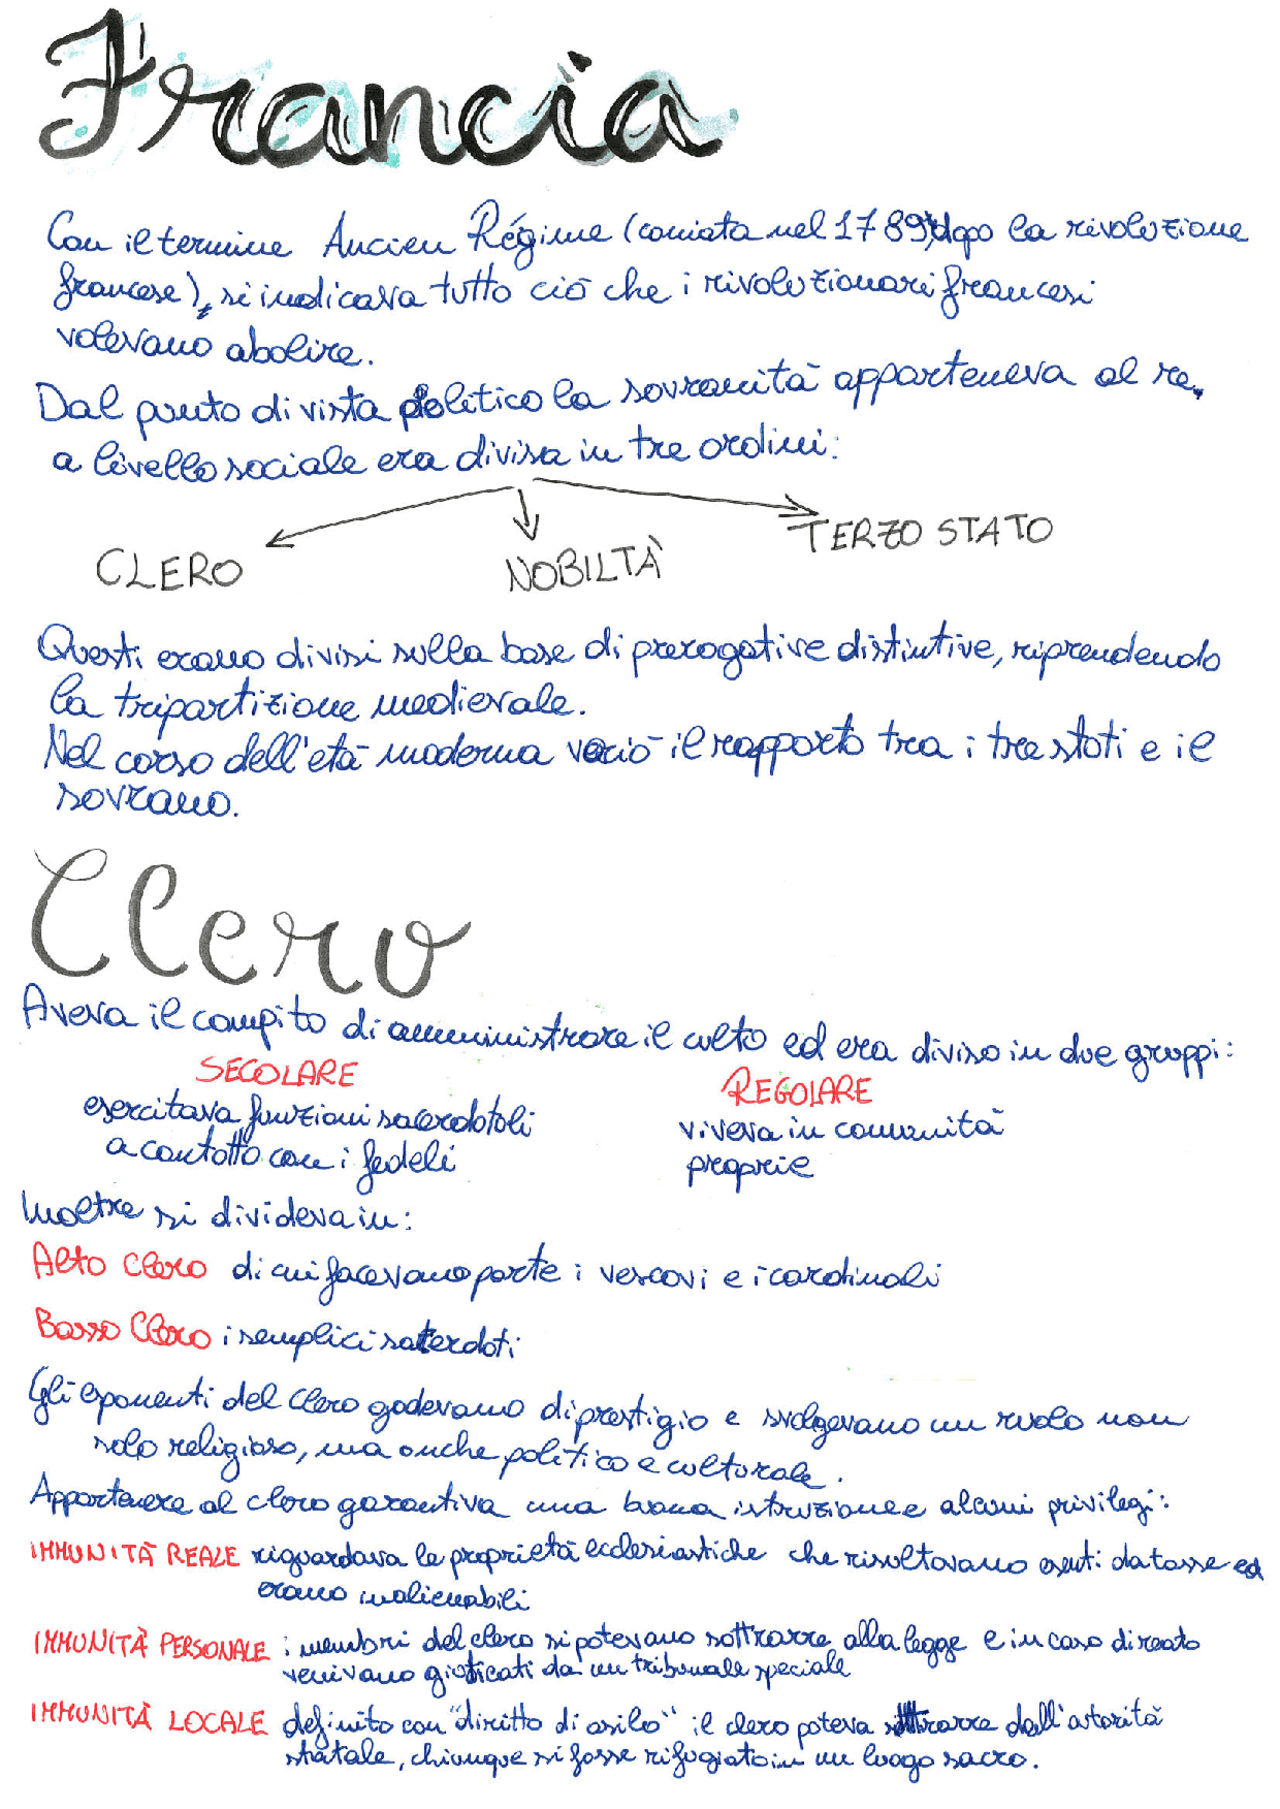 Francia
Con il termine Ancien Régime (coniata nel 1789, dopo la rivoluzione
francese), si indicava tutto ciò che i rivoluzionari francesi
volevano abolire.
Dal punto di vista politico la sovranità apparteneva al re,
a livello sociale era divisa in tre ordini:
CLERO NOBILTÀ TERZO STATO
Questi erano divisi sulla base di prerogative distintive, riprendendo
la tripartizione medievale.
Nel corso dell'età moderna variò il rapporto tra i tre stati e il
sovrano.
Clero
Aveva il compito di amministrare il culto ed era diviso in due gruppi:
SECOLARE REGOLARE
esercitava funzioni sacerdotali viveva in comunità
a contatto con i fedeli proprie
Inoltre si divideva in:
Alto Clero di cui facevano parte i vescovi e i cardinali
Basso Clero i semplici sacerdoti
Gli esponenti del clero godevano di prestigio e svolgevano un ruolo non
solo religioso, ma anche politico e culturale.
Appartenere al clero garantiva una buona istruzione e alcuni privilegi:
IMMUNITÀ REALE riguardava le proprietà ecclesiastiche che risultavano esenti da tasse ed
erano inalienabili
IMMUNITÀ PERSONALE i membri del clero si potevano sottrarre alla legge e in caso di reato
venivano giudicati da un tribunale speciale
IMMUNITÀ LOCALE definito con "diritto di asilo" il clero poteva sottrarre dall'autorità
statale, chiunque si fosse rifugiato in un luogo sacro.